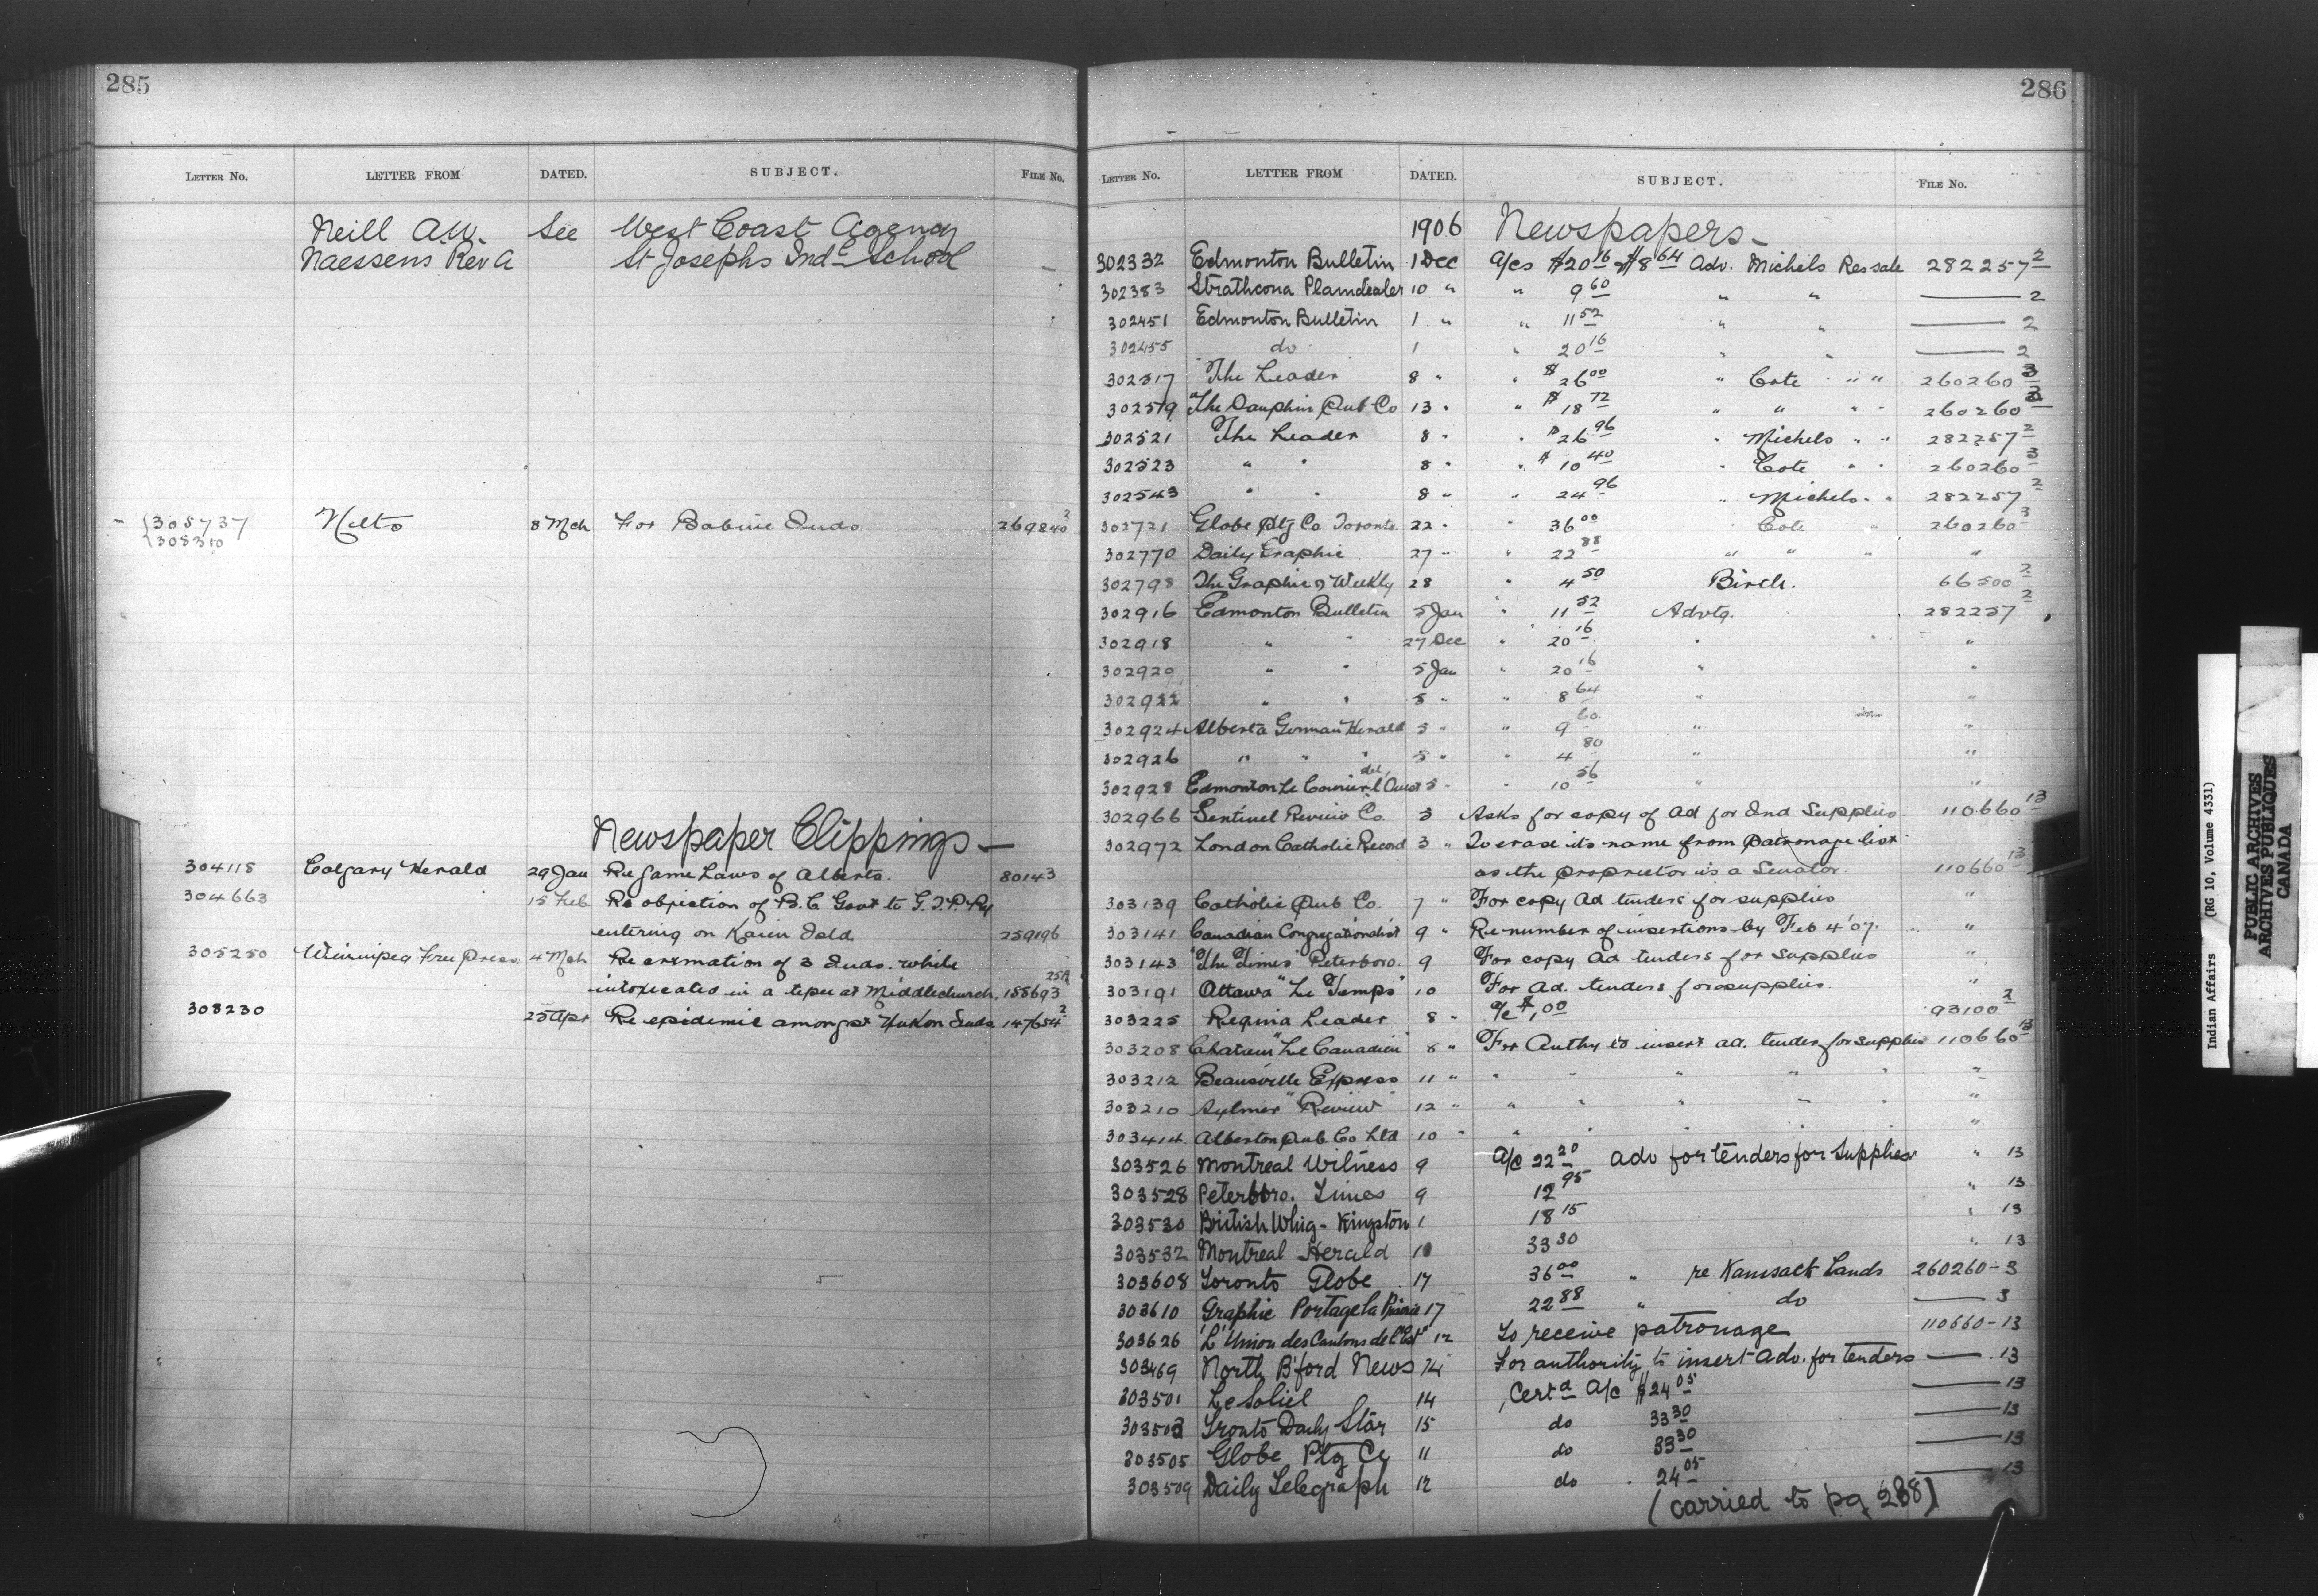 285
LETTER No. LETTER FROM DATED. SUBJECT. FILE No.
Neill A.W. See West Coast Agency
Naessens Rev A St Josephs Indl School
305737 Nets 8 Mch For Babine Inds. 269840 2
308310
Newspaper Clippings
304118 Calgary Herald 29 Jan Re Game Laws of Alberta. 80143
304663 15 Feb Re objection of B.C Govt to G.T.P. Ry
entering on Kaien Isld 259196
305250 Winnipeg Free Press 4 Mch Re cremation of 3 Inds. while
intoxicated in a tepee at Middlechurch. 158693 25A
308230 25 Apr Re epidemic amongst Yukon Inds 147654 2
286
LETTER No. LETTER FROM DATED. SUBJECT. FILE No.
1906 Newspapers
302332 Edmonton Bulletin 1 Dec a/cs $20 16 $8 64 Adv. Michels Res sale 282257 2
302383 Strathcona Plaindealer 10 " " 9 60 " " — 2
302451 Edmonton Bulletin 1 " " 11 52 " " — 2
302455 do 1 " 20 16 " " — 2
302517 The Leader 8 " " $26 00 " Cote " " 260260 3
302519 The Dauphin Pub Co 13 " " $18 72 " " " " 260260 3
302521 The Leader 8 " " $26 96 " Michels " " 282257 2
302523 " " 8 " " $10 40 " Cote " " 260260 3
302543 " " 8 " " 24 96 " Michels " " 282257 2
302721 Globe Ptg Co Toronto 22 " " 36 00 " Cote " 260260 3
302770 Daily Graphic 27 " " 22 88 " " " "
302798 The Graphic & Weekly 28 " 4 50 Birch. 66500 2
302916 Edmonton Bulletin 5 Jan " 11 52 Advtg. 282257 2
302918 " " 27 Dec " 20 16 " "
302920 " " 5 Jan " 20 16 " "
302922 " " 5 " " 8 64 " "
302924 Alberta German Herald 5 " " 9 60 " "
302926 " " " 5 " " 4 80 " "
302928 Edmonton Le Courier de l'Ouest 5 " " 10 56 " "
302966 Sentinel Review Co. 3 Asks for copy of ad for Ind Supplies 110660 13
302972 London Catholic Record 3 " To erase its name from patronage list
as the proprietor is a Senator. 110660 13
303139 Catholic Pub Co. 7 " For copy ad tenders for supplies "
303141 Canadian Congregationalist 9 " Re number of insertions by Feb 4 '07. "
303143 "The Times" Peterboro. 9 For copy ad tenders for supplies "
303191 Ottawa "Le Temps" 10 For ad. tenders for supplies. "
303225 Regina Leader 8 " a/c $1.00 93100 2
303208 Chatam "Le Canadien" 8 " For Authy to insert ad. tender for supplies 110660 13
303212 Beamsville Express 11 " " " " " " "
303210 Aylmer "Review" 12 " " " " " " "
303414 Alberton Pub. Co Ltd 10 " " " " " " "
303526 Montreal Witness 9 A/c 22 20 adv for tenders for Supplies " 13
303528 Peterboro. Times 9 12 95 " 13
303530 British Whig - Kingston 1 18 15 " 13
303532 Montreal Herald 10 33 30 " 13
303608 Toronto Globe 17 36 00 " re Kamsack Lands 260260-3
303610 Graphic Portage la Prairie 17 22 88 " do — 3
303626 "L'Union des Cantons de l'Est" 12 To receive patronage 110660-13
303469 North B'ford News 14 For authority to insert adv. for tenders — 13
303501 Le Soliel 14 Certd A/c $24 05 — 13
303503 Tronto Daily Star 15 do 33 30 — 13
303505 Globe Ptg Co 11 do 33 30 — 13
303509 Daily Telegraph 12 do 24 05 — 13
(carried to pg 288)
Indian Affairs (RG 10, Volume 4331)
PUBLIC ARCHIVES
ARCHIVES PUBLIQUES
CANADA